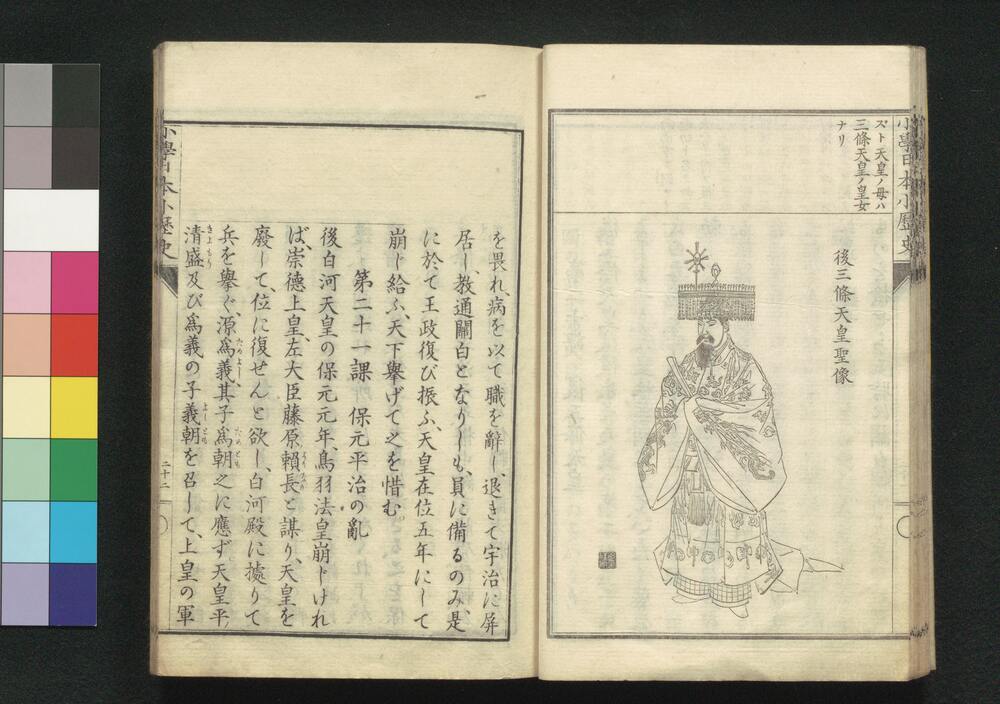 小學日本小歴史
ズト天皇ノ母ハ
三條天皇ノ皇女
ナリ
後三條天皇聖像
を畏れ、病を以て職を辭し、退きて宇治に屏
居し、教通關白となりしも、員に備るのみ、是
に於て王政復び振ふ、天皇在位五年にして
崩じ給ふ、天下擧げて之を惜む
第二十一課 保元平治の亂
後白河天皇の保元元年、鳥羽法皇崩じけれ
ば、崇德上皇、左大臣藤原頼長と謀り、天皇を
廢して、位に復せんと欲し、白河殿に據りて
兵を擧ぐ、源爲義其子爲朝之に應ず天皇平
清盛及び爲義の子義朝を召して、上皇の軍
小學日本小歴史
二十二